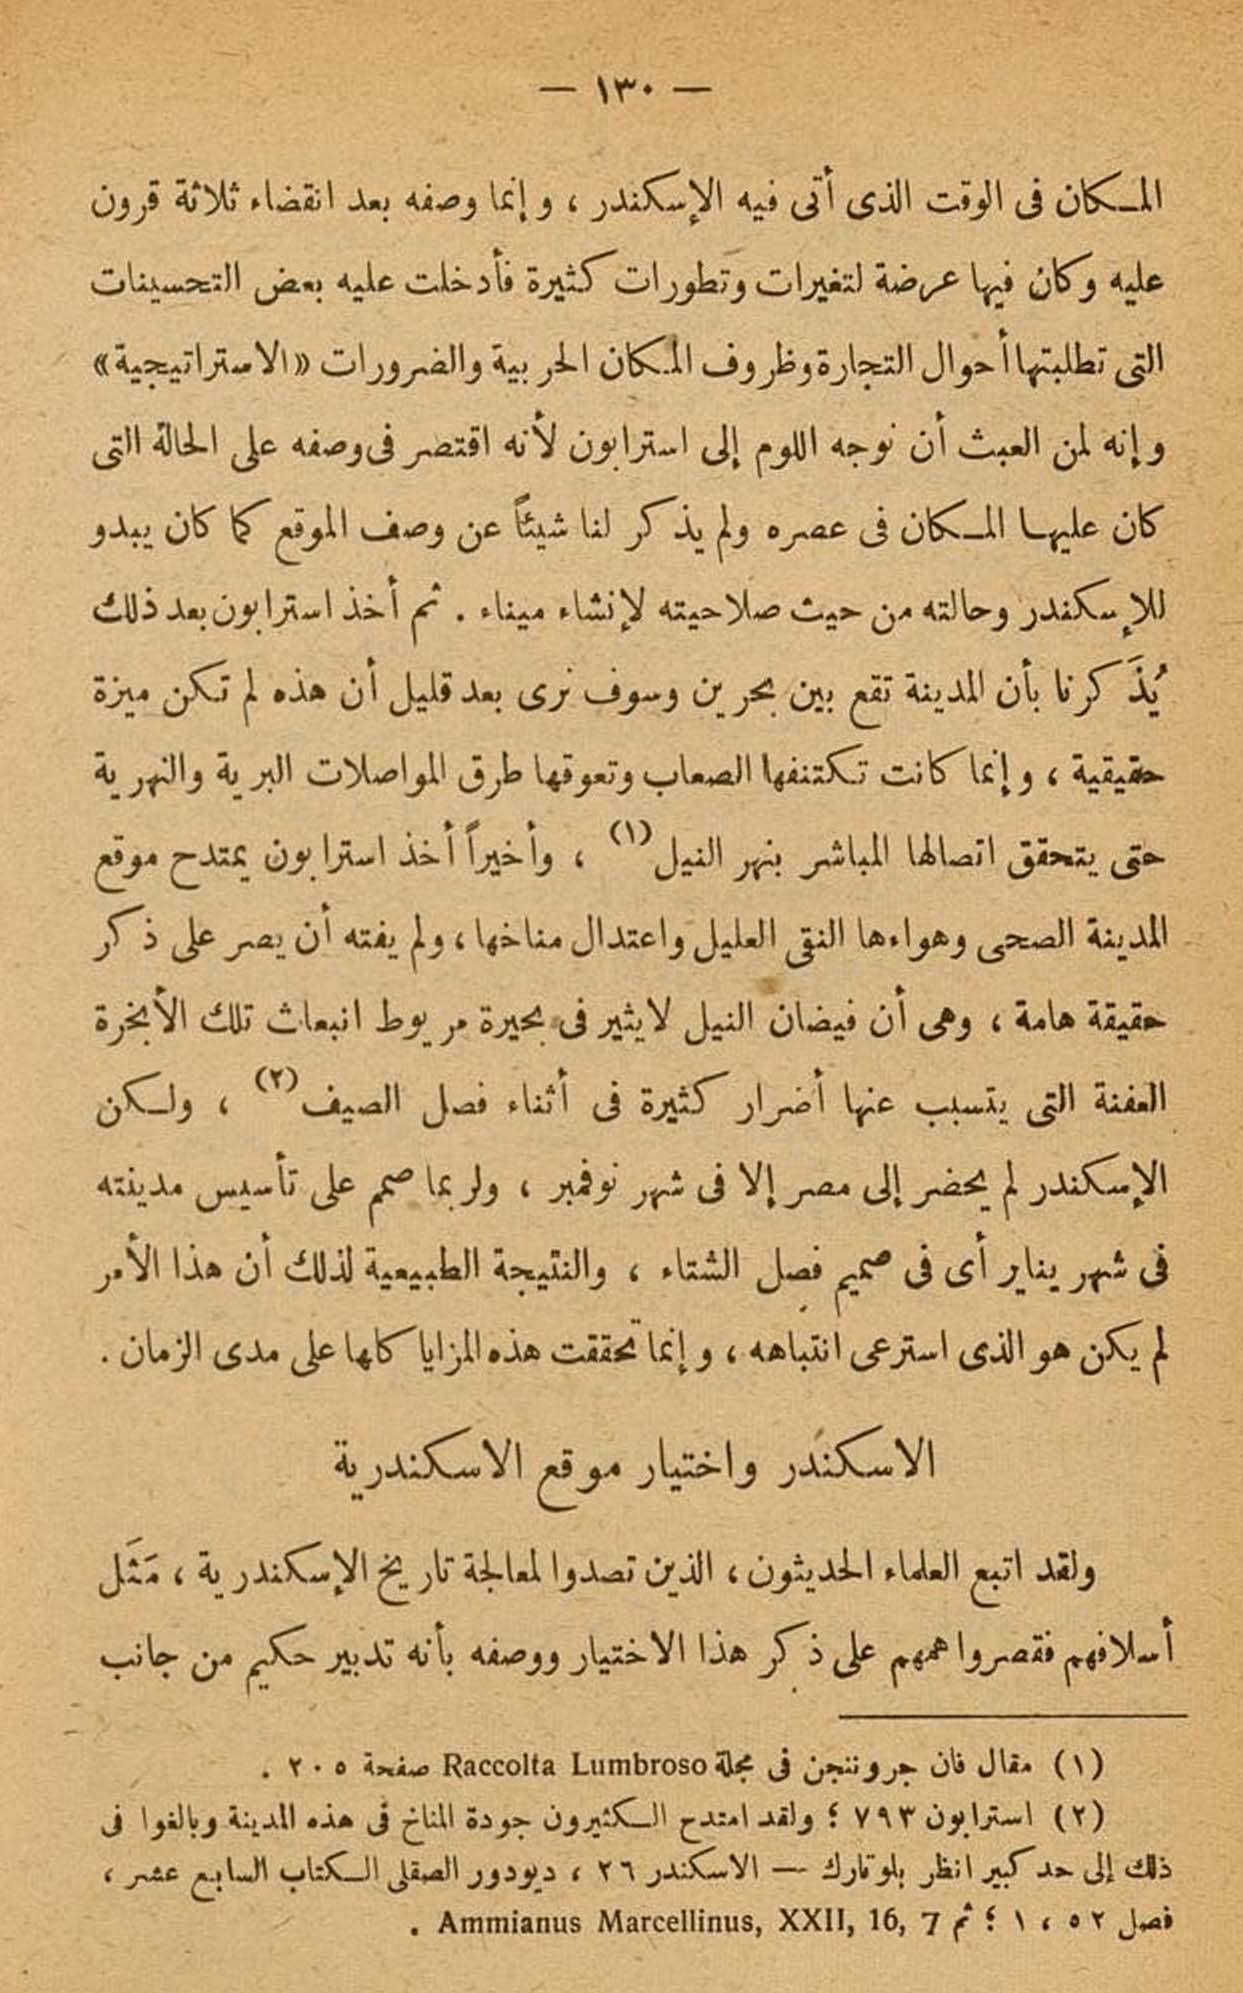 — ١٣٠ —
المكان فى الوقت الذى أتى فيه الإسكندر ، وإنما وصفه بعد انقضاء ثلاثة قرون
عليه وكان فيها عرضة لتغيرات وتطورات كثيرة فأدخلت عليه بعض التحسينات
التى تطلبتها أحوال التجارة وظروف المكان الحربية والضرورات «الاستراتيجية»
وإنه لمن العبث أن نوجه اللوم إلى استرابون لأنه اقتصر فى وصفه على الحالة التى
كان عليها المكان فى عصره ولم يذكر لنا شيئاً عن وصف الموقع كما كان يبدو
للإسكندر وحالته من حيث صلاحيته لإنشاء ميناء . ثم أخذ استرابون بعد ذلك
يُذَكرنا بأن المدينة تقع بين بحرين وسوف نرى بعد قليل أن هذه لم تكن ميزة
حقيقية ، وإنما كانت تكتنفها الصعاب وتعوقها طرق المواصلات البرية والنهرية
حتى يتحقق اتصالها المباشر بنهر النيل (١) ، وأخيراً أخذ استرابون يمتدح موقع
المدينة الصحى وهواءها النقى العليل واعتدال مناخها ، ولم يفته أن يصر على ذكر
حقيقة هامة ، وهى أن فيضان النيل لا يثير فى بحيرة مريوط انبعاث تلك الأبخرة
العفنة التى يتسبب عنها أضرار كثيرة فى أثناء فصل الصيف (٢) ، ولكن
الإسكندر لم يحضر إلى مصر إلا فى شهر نوفمبر ، ولربما صمم على تأسيس مدينته
فى شهر يناير أى فى صميم فصل الشتاء ، والنتيجة الطبيعية لذلك أن هذا الأمر
لم يكن هو الذى استرعى انتباهه ، وإنما تحققت هذه المزايا كلها على مدى الزمان .
الاسكندر واختيار موقع الاسكندرية
ولقد اتبع العلماء الحديثون ، الذين تصدوا لمعالجة تاريخ الإسكندرية ، مَثَل
أسلافهم فقصروا همهم على ذكر هذا الاختيار ووصفه بأنه تدبير حكيم من جانب
(١) مقال فان جروننجن فى مجلة Raccolta Lumbroso صفحة ٢٠٥ .
(٢) استرابون ٧٩٣ ؛ ولقد امتدح الكثيرون جودة المناخ فى هذه المدينة وبالغوا فى
ذلك إلى حد كبير انظر بلوتارك — الاسكندر ٢٦ ، ديودور الصقلى الكتاب السابع عشر ،
فصل ٥٢ ، ١ ؛ ثم Ammianus Marcellinus, XXII, 16, 7 .